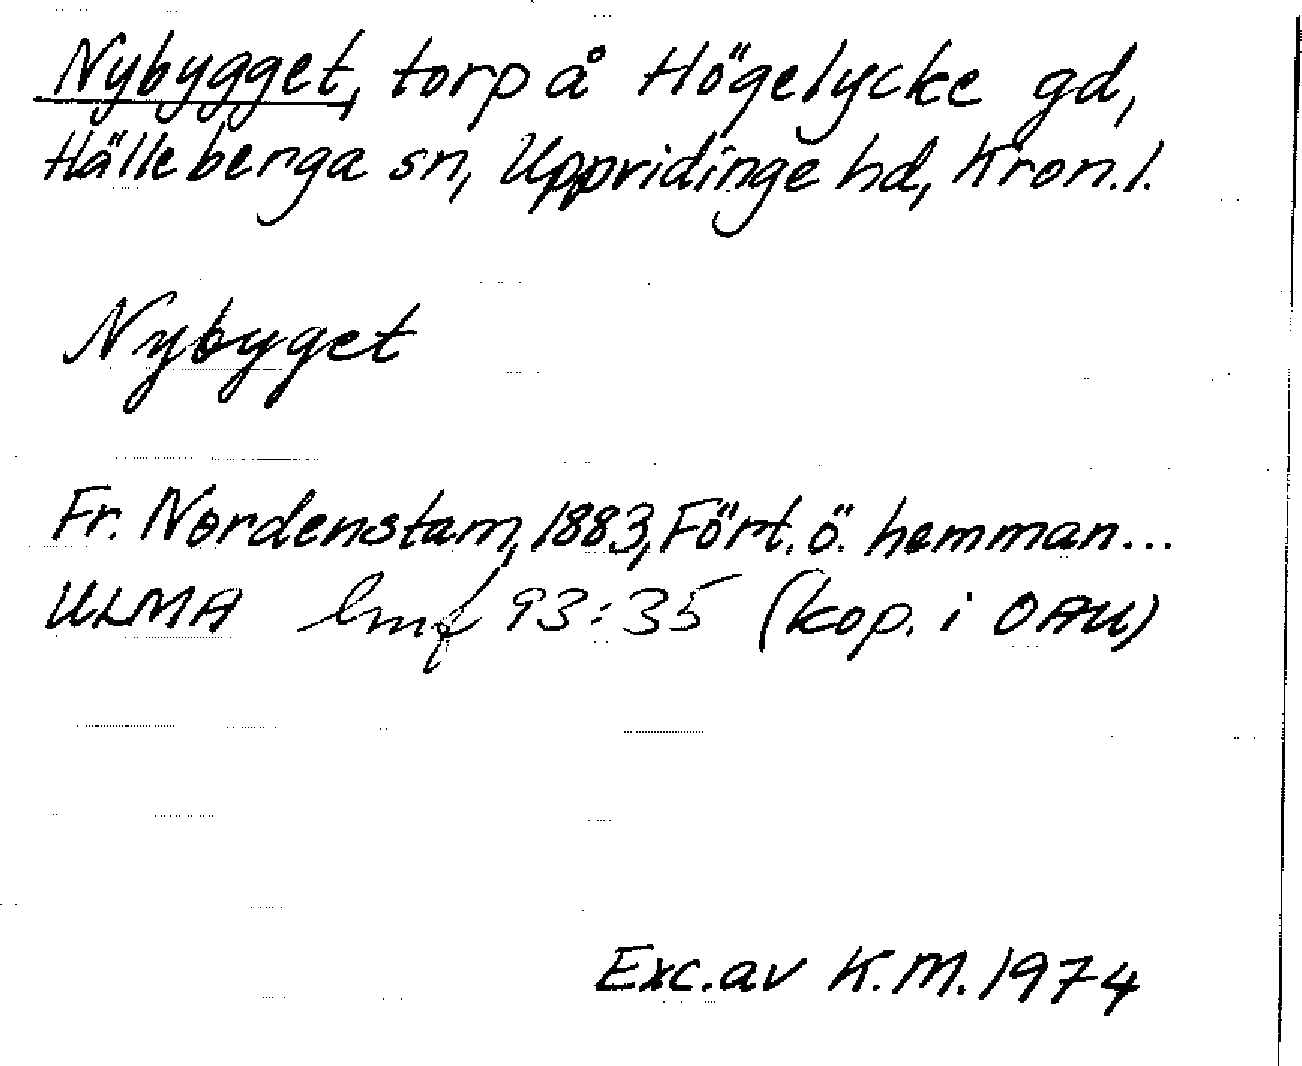 Nybygget, torp å Högelycke gd,
Hälleberga sn, Uppvidinge hd, Kron.l.
Nybyget
Fr. Nordenstam, 1883, Fört. ö. hemman...
ULMA lmf 93:35 (kop. i OAU)
Exc. av K.M. 1974